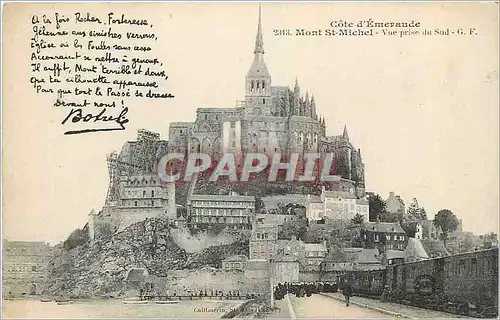 Et la fois Rocher, Forteresse,
Géheuse aux sinistres verrous,
Eglise où les Foules sans cesse
Accouraient se mettre à genoux,
Il suffit, Mont terrible et doux,
Que ta silhouette apparaisse
Pour que tout le Passé se dresse
Devant nous !
Botrel
Côte d'Émeraude
2313. Mont St-Michel - Vue prise du Sud - G. F.
CPARAMA.COM